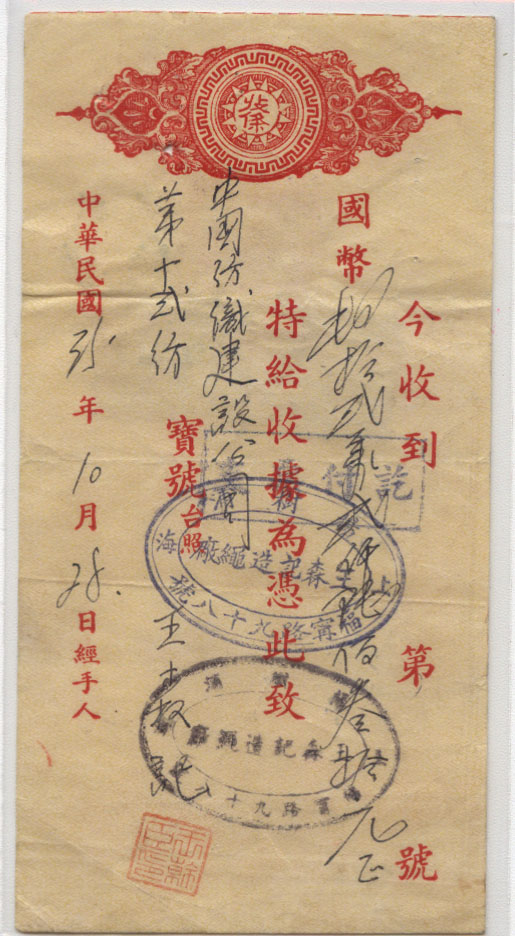 今收到 第 號
國幣 拾貳萬 佰叁拾元正
特給收據為憑此致
中國紡織建設公司
第十弍紡
寶號台照
中華民國35年10月28日經手人
王森記
付訖
上海王森記造繩廠
福寧路九十八號
森記造繩廠
福寧路九十